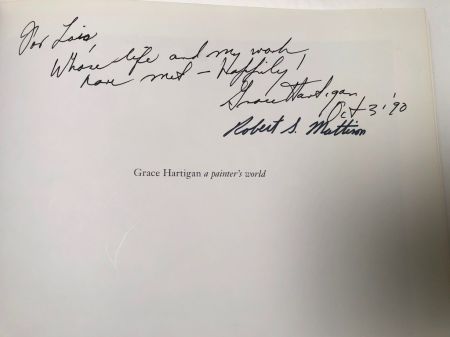 For Lois,
Whose life and my work
have met – Happily!
Grace Hartigan
Oct 3 '90
Robert S. Mattison
Grace Hartigan a painter's world